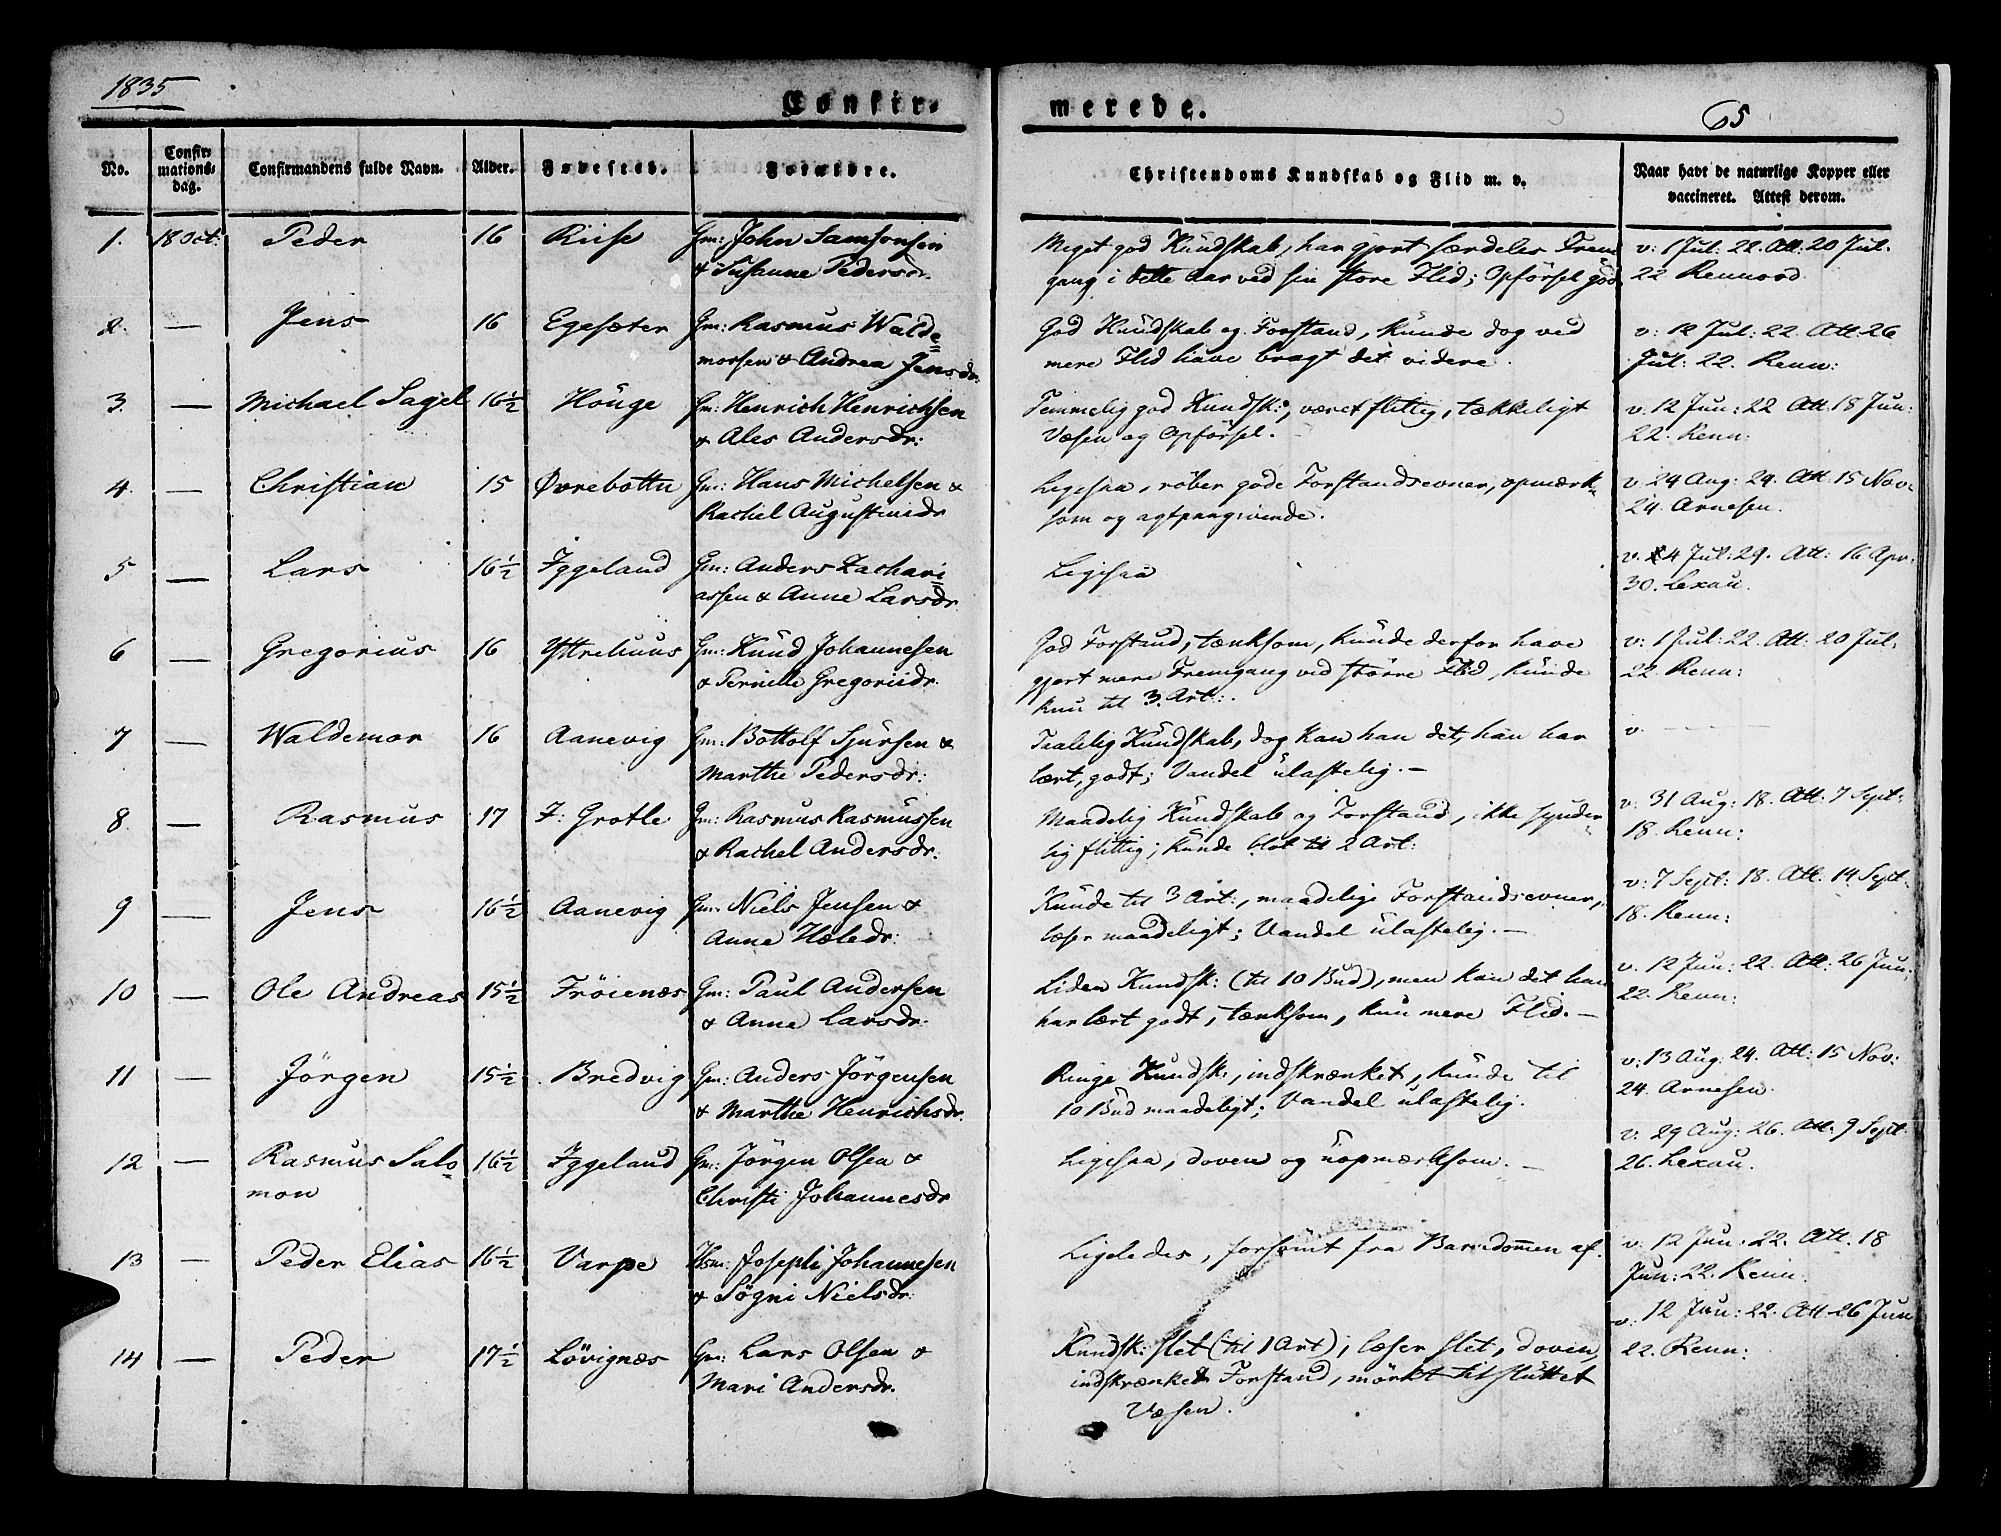 1835
Confir-
merede.
65
No.
Confir-
mations-
dag.
Confirmandens fulde Navn.
Alder.
Fødested.
Forældre.
Christendoms Kundskab og Flid m. v.
Naar havt de naturlige Kopper eller
vaccineret. Attest derom.
1. 18 Oct: Peder 16 Riise Gm: John Samsonsen
& Susanne Pedersdr.
Meget god Kundskab, har gjort særdeles Frem
gang i dette Aar ved sin store Flid; Opførsel god
v: 1 Jul: 22. Att: 20 Jul.
22 Rennord.
2. — Jens 16 Egesæter Gm: Rasmus Walde
morsen & Andrea Jensdr:
God Kundskab og Forstand, kunde dog ved
mere Flid have bragt det videre.
v: 12 Jul: 22. Att: 26
Jul: 22. Renn:
3. — Michael Sagel 16½ Houge Gm: Henrich Henrichsen
& Ales Andersdr:
Temmelig god Kundsk:, været flittig, tækkeligt
Væsen og Opførsel.
v. 12 Jun: 22 Att. 18 Jun:
22. Renn:
4. — Christian 15 Øvrebottn Gm: Hans Michelsen &
Rachel Augustinusdr
Ligesaa, røber gode Forstandsevner, opmærk-
som og agtpaagivende.
v. 24 Aug: 24. Att: 15 Nov.
24. Arnesen.
5 — Lars 16½ Iggeland Gm: Anders Zachari
assen & Anne Larsdr.
Ligesaa
v. 4 Jul: 29. Att: 16 Apr:
30. Lexau.
6 — Gregorius 16 Yttrehuus Gm: Knud Johannesen
& Pernille Gregoriidr.
God Forstand, tænksom, kunde derfor have
gjort mere Fremgang ved større Flid, kunde
kun til 3. Art:.
v: 1 Jul: 22. Att: 20 Jul.
22. Renn:
7 — Waldemor 16 Aanevig Gm: Bottolf Sjursen &
Marthe Pedersdr:
Taalelig Kundskab, dog kan han det, han har
lært, godt; Vandel ulastelig. —
v. —
8. — Rasmus 17 I: Grotle Gm: Rasmus Rasmussen
& Rachel Andersdr:
Maadelig Kundskab og Forstand, ikke synder-
lig flittig; kunde blot til 2 Art:
v: 31 Aug: 18. Att: 7 Sept:
18. Renn:
9 — Jens 16½ Aanevig Gm: Niels Jensen &
Anne Hæledr:
Kunde til 3 Art:, maadelige Forstandsevner,
læser maadeligt; Vandel ulastelig. —
v: 7 Sept: 18. Att. 14 Sept.
18. Renn:
10 — Ole Andreas 15½ Frøienæs Gm: Paul Andersen
& Anne Larsdr.
Liden Kundsk: (til 10 Bud), men kan det han
har lært godt, tænksom, kun mere Flid. —
v. 12 Jun: 22. Att: 26 Jun:
22. Renn:
11 — Jørgen 15½ Bredvig Gm: Anders Jørgensen
& Marthe Henrichsdr.
Ringe Kundsk:, indskrænket, kunde til
10 Bud maadeligt; Vandel ulastelig.
v: 13 Aug: 24. Att: 15 Nov:
24. Arnesen.
12 — Rasmus Salo 16½ Iggeland Gm: Jørgen Olsen &
mon Christi Johannesdr
Ligesaa, doven og uopmærksom. —
v: 29 Aug: 26. Att: 9 Sept:
26. Lexau.
13 — Peder Elias 16½ Varpe Hsm: Joseph Johannesen
& Søgni Nielsdr:
Ligeledes, forsømt fra Barndommen af.
v: 12 Jun: 22. Att. 18
Jun: 22. Renn.
14 — Peder 17½ Løvignæs Gm: Lars Olsen &
Mari Andersdr.
Kundsk: slet (til 1 Art); læser slet, doven,
indskrænket Forstand, mørkt tilsluttet
Væsen.
v: 12 Jun: 22. Att. 26 Jun
22. Renn: